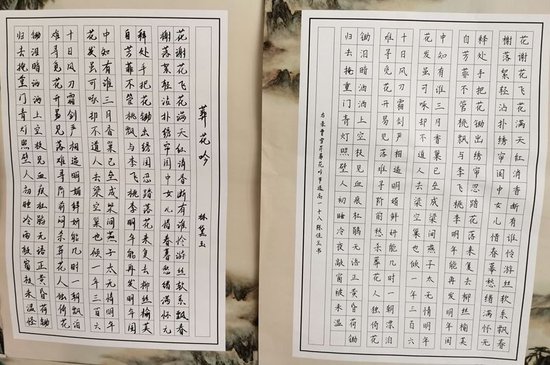 葬花吟
林黛玉
花谢花飞花满天红消香断有谁怜游丝软系飘春
榭落絮轻沾扑绣帘闺中女儿惜春暮愁绪满怀无
释处手把花锄出绣闺忍踏落花来复去柳丝榆荚
自芳菲不管桃飘与李飞桃李明年能再发明年闺
中知有谁三月香巢已垒成梁间燕子太无情明年
花发虽可啄却不道人去梁空巢也倾一年三百六
十日风刀霜剑严相逼明媚鲜妍能几时一朝飘泊
难寻觅花开易见落难寻阶前闷杀葬花人独倚花
锄泪暗洒洒上空枝见血痕杜鹃无语正黄昏荷锄
归去掩重门青灯照壁人初睡冷雨敲窗被未温怪
花谢花飞花满天红消香断有谁怜游丝软系飘春
榭落絮轻沾扑绣帘闺中女儿惜春暮愁绪满怀无
释处手把花锄出绣帘忍踏落花来复去柳丝榆荚
自芳菲不管桃飘与李飞桃李明年能再发明年闺
中知有谁三月香巢已垒成梁间燕子太无情明年
花发虽可啄却不道人去梁空巢也倾一年三百六
十日风刀霜剑严相逼明媚鲜妍能几时一朝漂泊
难寻觅花开易见落难寻阶前愁杀葬花人独倚花
锄泪暗洒洒上空枝见血痕杜鹃无语正黄昏荷锄
归去掩重门青灯照壁人初睡冷夜敲窗被未温
曹雪芹葬花吟节选高一十八